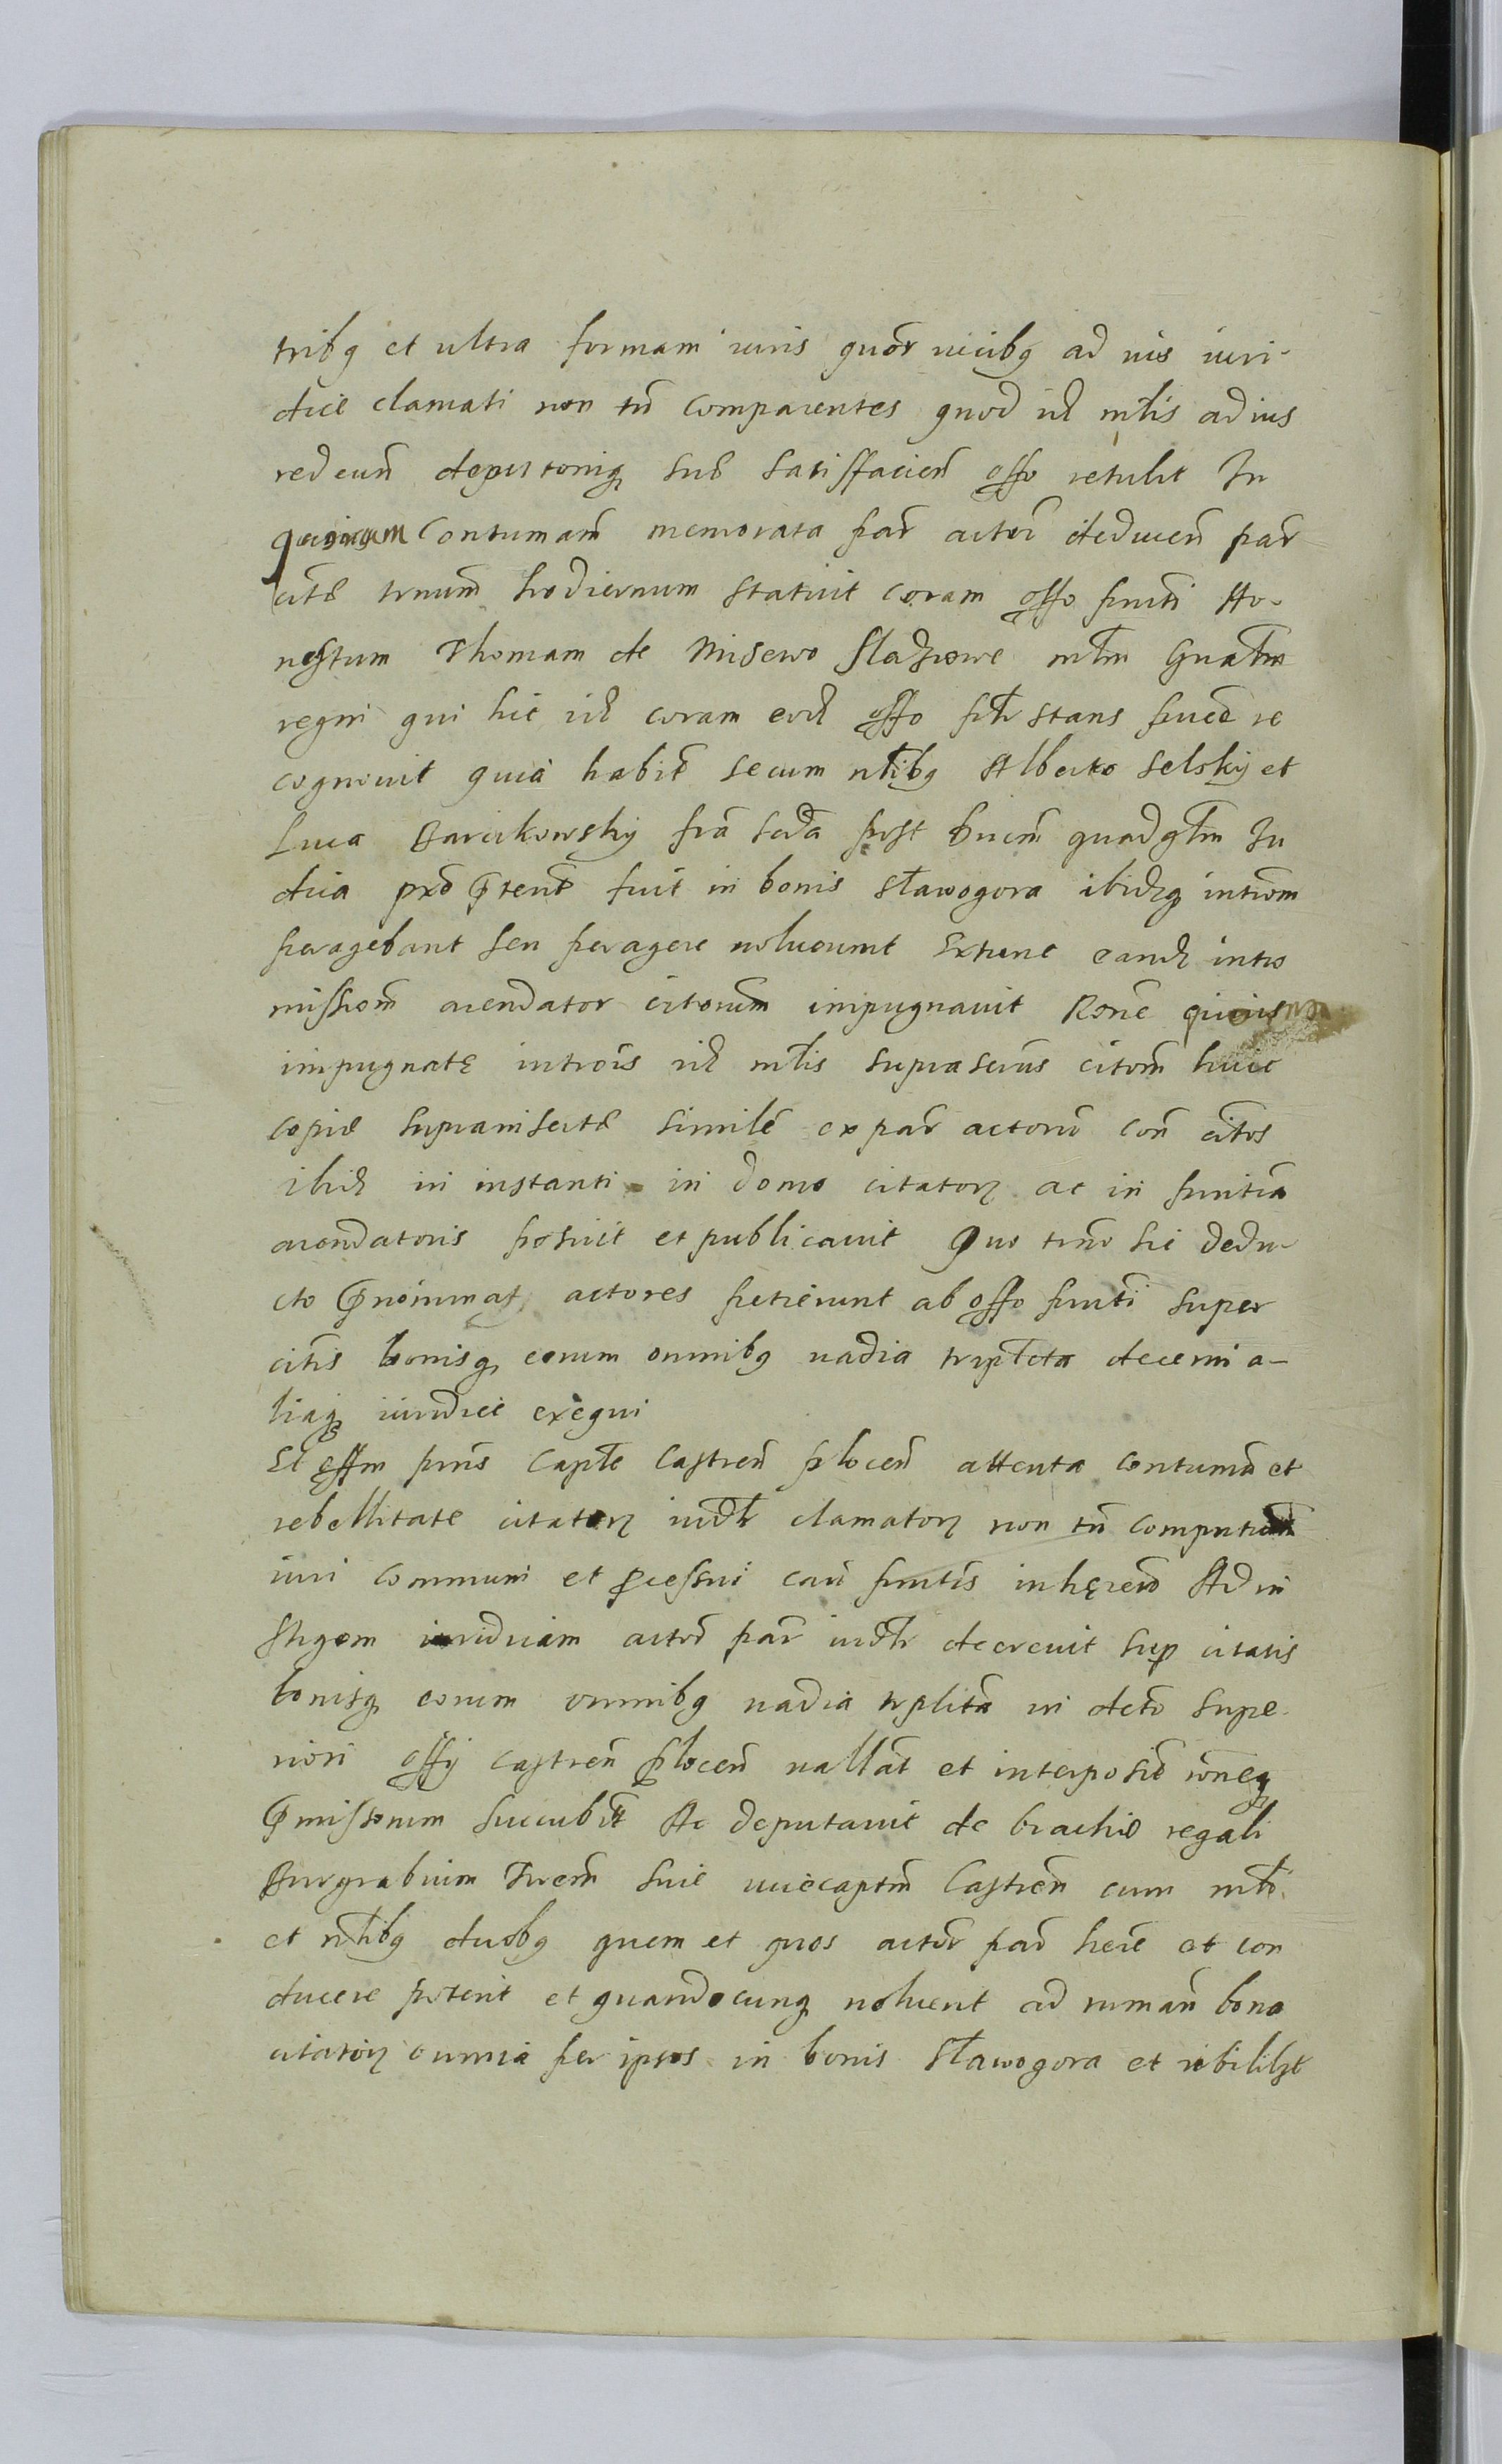 tribq et ultra formam iuris quor vicibq ad ius iuri-
dice clamati non tn comparentes quod id mtlis ad ius
redeun depuitoniq sub satisfacien offo retulit In
quorum contumam memorata par actor deducen par
cite trnum hodiernum statuit coram offo pnti Ho-
nestum Thomam de Misewo mtlm Gnalm
regni qui hic id coram eod offo ptr stans re
cognouit quia habite secum ntlibq Alberto Selsky et
Luca Barcikowsky fra scda post quadgtm In
dica pxo preterit fuit in bonis Sławogora ibidq introm
peragebant seu peragere voluerunt Extunc eand intro
missiom arendator citorum impugnauit Rone cuius
impugnate introis id mtlis suprascrius citom huic
copie supraniserte simile ex par actoru con citos
ibid in instanti in domo citatorz ac in pntia
arendatoris posuit et publicauit Quo trno sic dedu-
cto pnominat actores petierunt ab offo pnti super
citis bonisq eorum omnibq vadia triplicta decerni a-
liaq iuridice exequi
Et offm pns Capte Castren plocen attenta contuma et
rebellitate citatorz iudtr clamatorz non tn
iuri communi et pcessui cau pntis inheren Ad in
stigom iuridicam actor par iudtr decreuit sup citatis
bonisq eorum omnibq vadia tplita in deto supe-
riori offy castren plocen vallat et interposit roneq
pmissorum succubit Ac deputauit de brachio regali
Burgrabium Iuem siue vicecaptm Castren cum mtl
et ntlibq duobq quem et quos actor par here et con
ducere poterit et quandocunq voluerit ad ruman bona
citatorz omnia per ipsos in bonis Sławogora et vbilibt